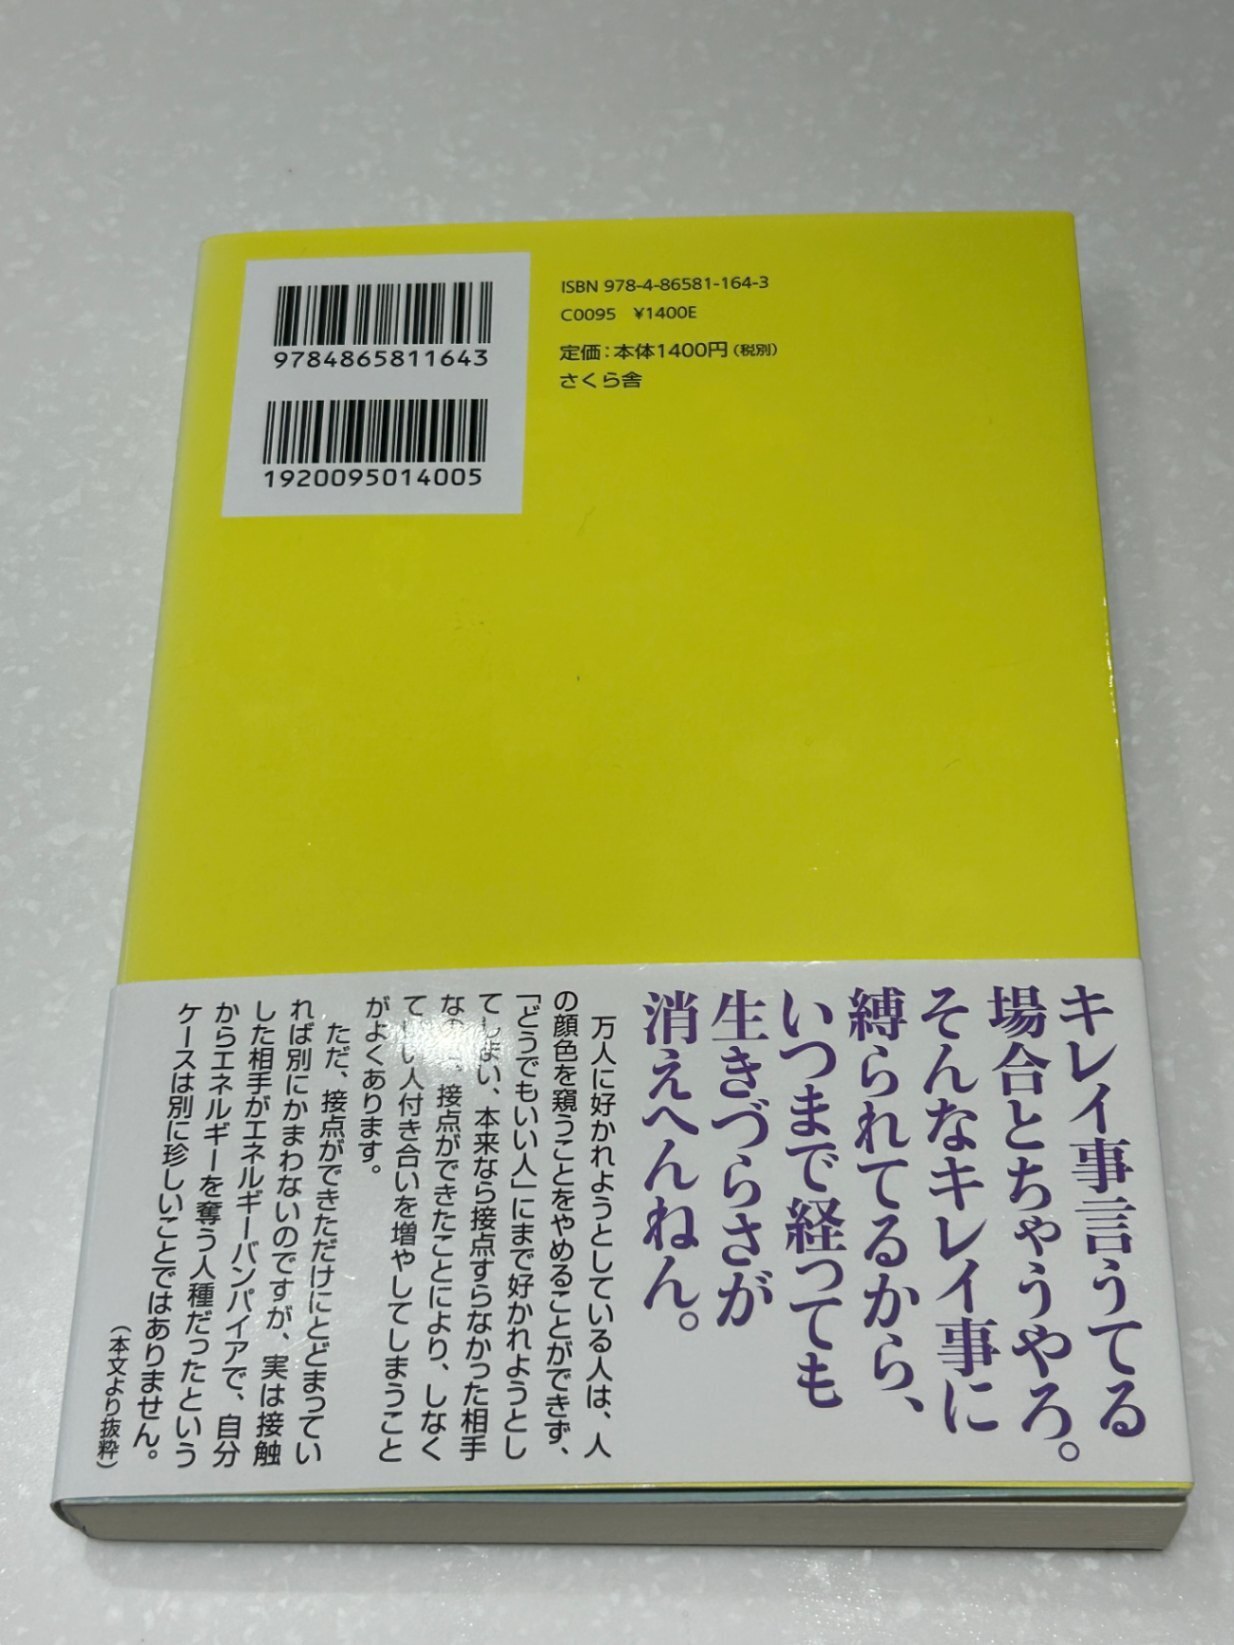 9784865811643
1920095014005
ISBN 978-4-86581-164-3
C0095 ¥1400E
定価：本体1400円（税別）
さくら舎
キレイ事言うてる
場合とちゃうやろ。
そんなキレイ事に
縛られてるから、
いつまで経っても
生きづらさが
消えへんねん。
万人に好かれようとしている人は、人
の顔色を窺うことをやめることができず、
「どうでもいい人」にまで好かれようとし
てしまい、本来なら接点すらなかった相手
な、接点ができたことにより、しなく
てい人付き合いを増やしてしまうこと
がよくあります。
ただ、接点ができただけにとどまってい
れば別にかまわないのですが、実は接触
した相手がエネルギーバンパイアで、自分
からエネルギーを奪う人種だったという
ケースは別に珍しいことではありません。
（本文より抜粋）